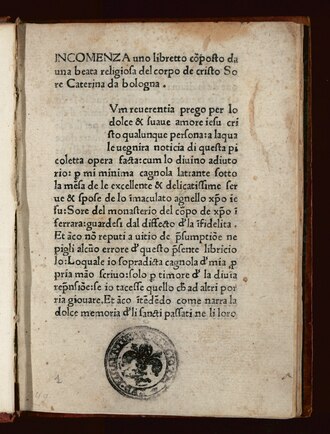 INCOMENZA uno libretto cōposto da
una beata religiosa del corpo de cristo So
re Caterina da bologna .
Vm reuerentia prego per lo
dolce & suaue amore iesu cri
sto qualunque persona: a laqua
le uegnira noticia di questa pi
coletta opera facta: cum lo diuino adiuto
rio: p mi minima cagnola latrante sotto
la mēsa de le excellente & delicatissime ser
ue & spose de lo imaculato agnello xpō ie
su: Sore del monasterio del cōpo de xpō i
ferrara: guardesi dal diffecto d'la īfidelita .
Et āco nō reputi a uitio de p̄sumptiōe ne
pigli alcūo errore d'questo p̄sente libricio
lo: Loquale io sopradicta cagnola d'mia p
pria māo scriuo: solo p timore d'la diuīa
rep̄nsiōe: se io tacesse quello cħ ad altri por
ria giouare. Et āco ītēdēdo come narra la
dolce memoria d'li sancti passati ne li loro